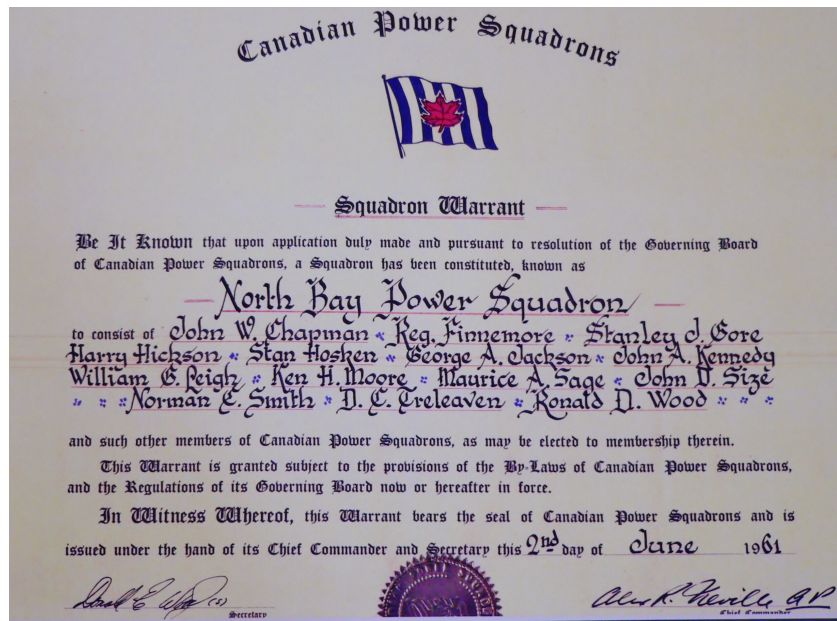 Canadian Power Squadrons
Squadron Warrant
Be It Known that upon application duly made and pursuant to resolution of the Governing Board
of Canadian Power Squadrons, a Squadron has been constituted, known as
North Bay Power Squadron
to consist of John W. Chapman Reg. Finnemore Stanley J. Gore
Harry Hickson Stan Hosken George A. Jackson John A. Kennedy
William G. Leigh Ken H. Moore Maurice A. Sage John D. Size
Norman E. Smith D. C. Treleaven Ronald D. Wood
and such other members of Canadian Power Squadrons, as may be elected to membership therein.
This Warrant is granted subject to the provisions of the By-Laws of Canadian Power Squadrons,
and the Regulations of its Governing Board now or hereafter in force.
In Witness Whereof, this Warrant bears the seal of Canadian Power Squadrons and is
issued under the hand of its Chief Commander and Secretary this 2nd day of June 1961
Alex R. Neville AP
Secretary
Chief Commander